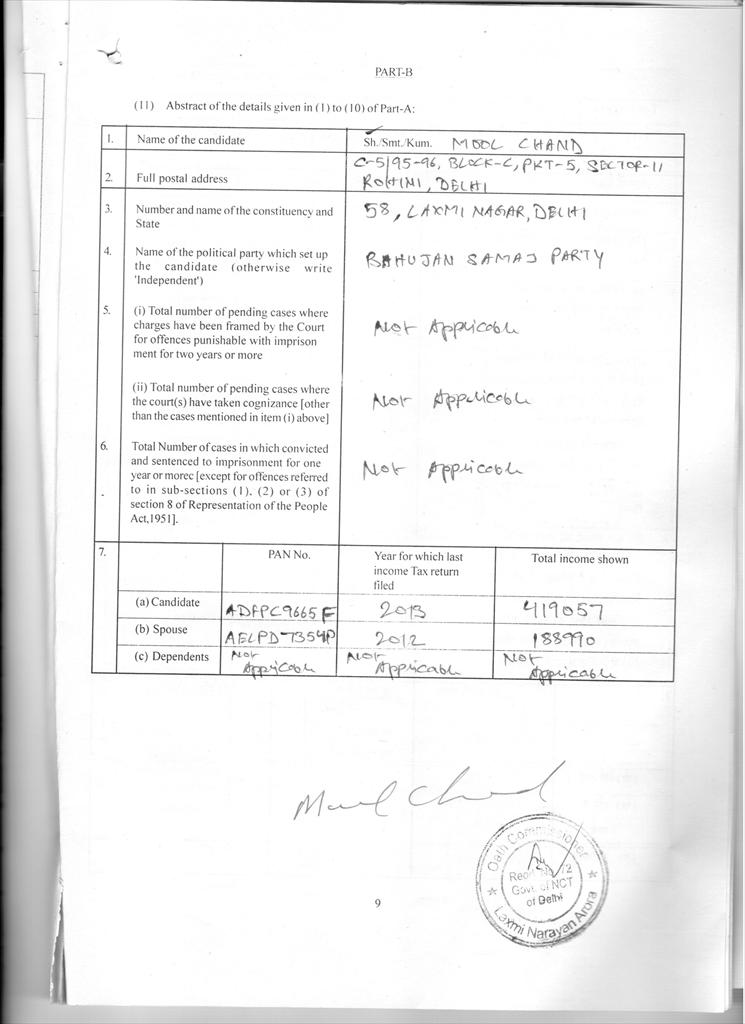 PART-B
(11) Abstract of the details given in (1) to (10) of Part-A:
1. Name of the candidate Sh./Smt./Kum. MOOL CHAND
2. Full postal address C-5/95-96, BLOCK-C, PKT-5, SECTOR-11
ROHINI, DELHI
3. Number and name of the constituency and 58, LAXMI NAGAR, DELHI
State
4. Name of the political party which set up BAHUJAN SAMAJ PARTY
the candidate (otherwise write
'Independent')
5. (i) Total number of pending cases where
charges have been framed by the Court Not Applicable
for offences punishable with imprison
ment for two years or more
(ii) Total number of pending cases where
the court(s) have taken cognizance [other Not Applicable
than the cases mentioned in item (i) above]
6. Total Number of cases in which convicted
and sentenced to imprisonment for one Not Applicable
year or morec [except for offences referred
to in sub-sections (1). (2) or (3) of
section 8 of Representation of the People
Act,1951].
7. PAN No. Year for which last Total income shown
income Tax return
filed
(a) Candidate ADFPC9665F 2013 419057
(b) Spouse AELPD7354P 2012 188990
(c) Dependents Not Applicable Not Applicable Not Applicable
Mool Chand
Oath Commissioner
Govt. of NCT
of Delhi
Laxmi Narayan Arora
9